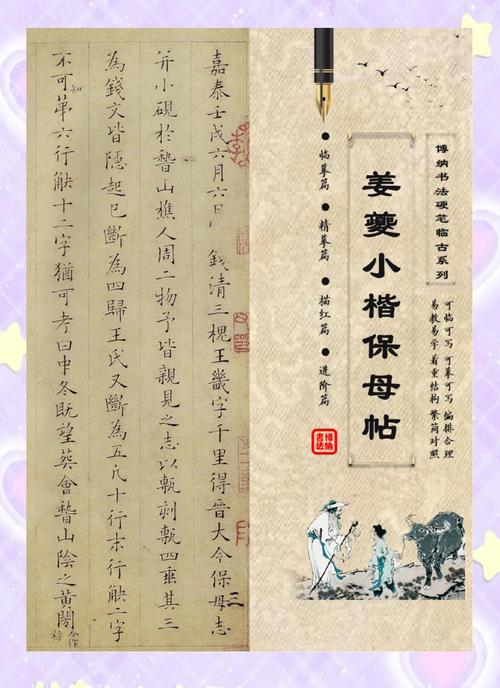 博纳书法硬笔临古系列
姜夔小楷保母帖
可临可写 可摹可写 编排合理
易教易学 着重结构 繁简对照
● 临摹篇 ● 精摹篇 ● 描红篇 ● 进阶篇
博纳书法
嘉泰壬戌六月六日 錢清三槐王畿字千里得晉大令保母志
并小硯於稽山樵人周二物予皆親見之志以甎刻甎四垂其三
為錢文皆隱起已斷為四歸王氏又斷為五凡十行末行觖二字
不可知第六行觖十二字猶可考曰中冬既望葬會稽山陰之黃閍